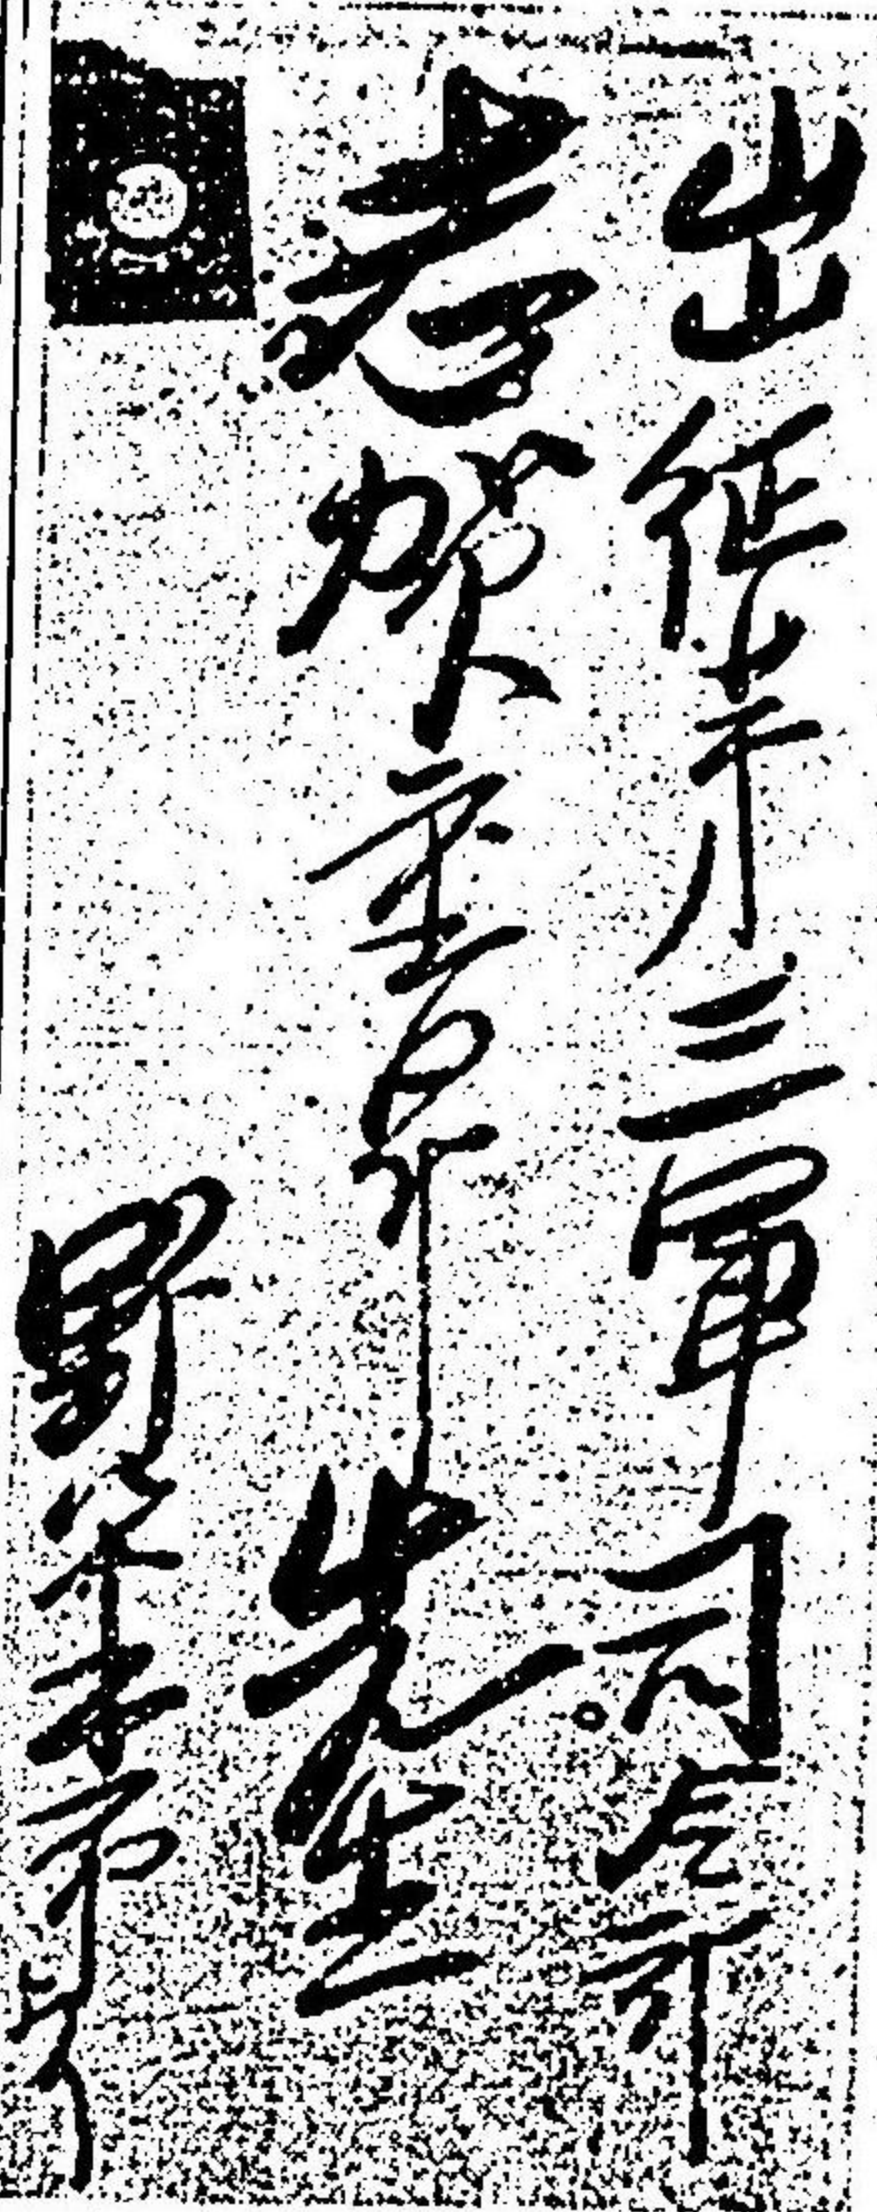 出征第三軍司令部
志賀重昂先生
野